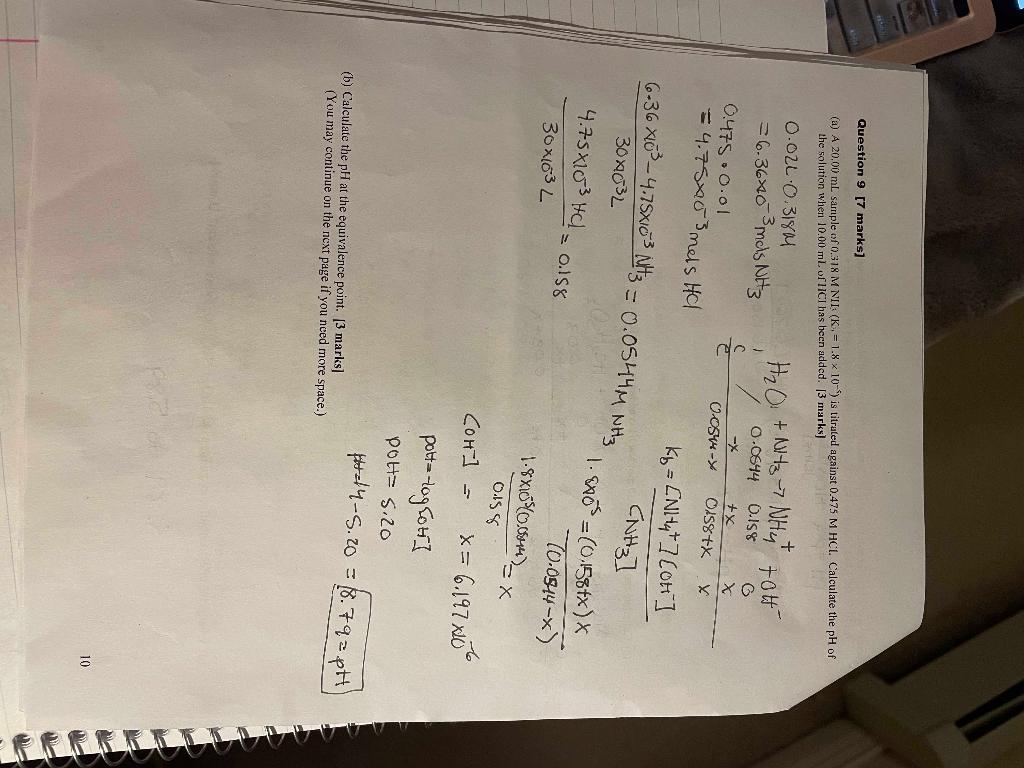 Question 9 [7 marks]
(a) A 20.00 mL sample of 0.318 M NH₃ (K_b = 1.8 × 10⁻⁵) is titrated against 0.475 M HCl. Calculate the pH of
the solution when 10.00 mL of HCl has been added. [3 marks]
0.02L·0.318M
= 6.36x10⁻³ mols NH₃
0.475 • 0.01
= 4.75x10⁻³ mols HCl
6.36 x10⁻³ - 4.75x10⁻³ NH₃ = 0.0544 M NH₃
30x10⁻³ L
4.75x10⁻³ HCl = 0.158
30x10⁻³ L
H₂O + NH₃ → NH₄⁺ + OH⁻
I / 0.0544 0.158 0
C -x +x x
E 0.0544-x 0.158+x x
K_b = [NH₄⁺][OH⁻]
[NH₃]
1.8x10⁻⁵ = (0.158+x)x
(0.0544-x)
1.8x10⁻⁵(0.0544) = x
0.158
[OH⁻] = x = 6.197 x10⁻⁶
pOH = -log[OH⁻]
pOH = 5.20
14 - 5.20 = 8.79 = pH
(b) Calculate the pH at the equivalence point. [3 marks]
(You may continue on the next page if you need more space.)
10